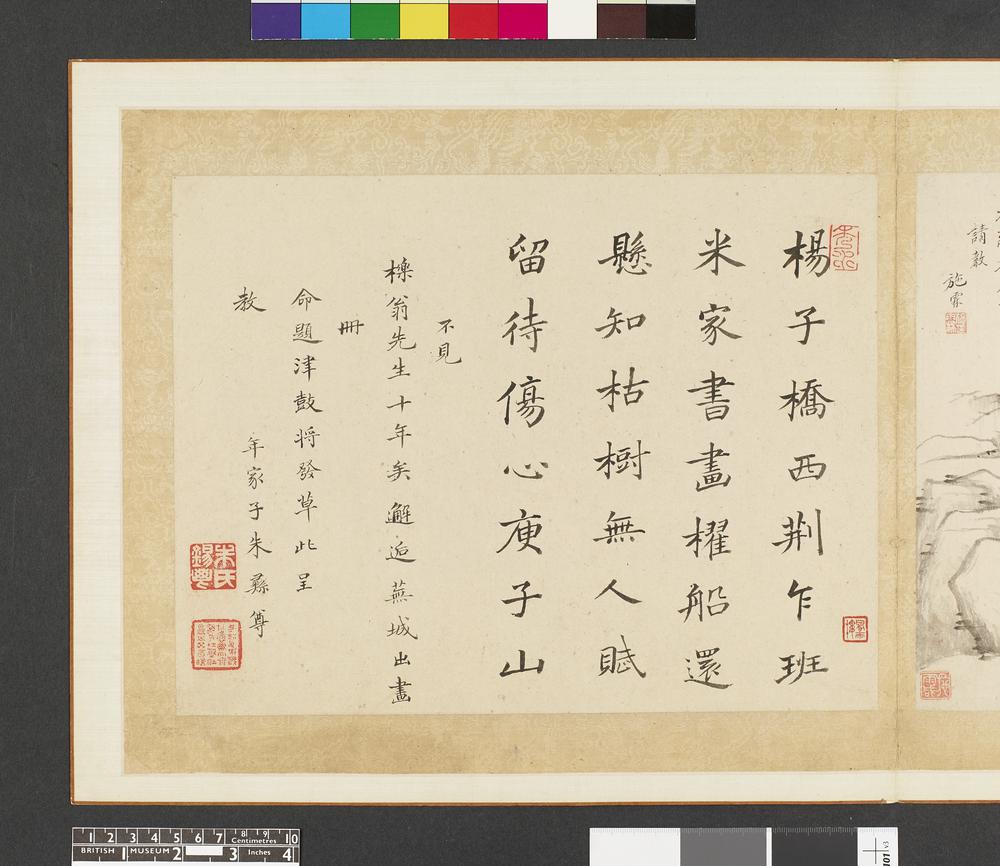 請教
施霖
楊子橋西荆乍班
米家書畫櫂船還
懸知枯樹無人賦
留待傷心庾子山
不見
櫟翁先生十年矣邂逅蕪城出畫
冊
命題津鼓将發草此呈
教
年家子朱彝尊
朱氏
錫鬯
1 2 3 4 5 6 7 8 9 10
Centimetres
BRITISH MUSEUM
1 2 3 4
Inches